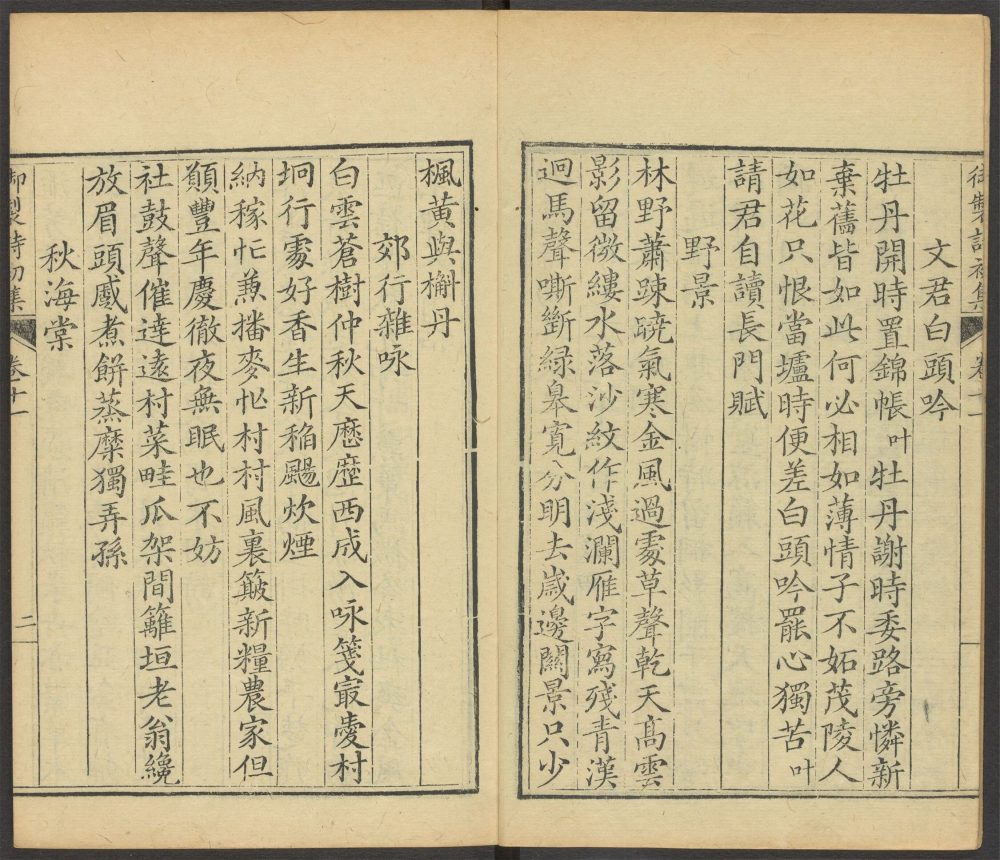 文君白頭吟
牡丹開時置錦帳叶牡丹謝時委路旁憐新
棄舊皆如此何必相如薄情子不妬茂陵人
如花只恨當壚時便差白頭吟罷心獨苦叶
請君自讀長門賦
野景
林野蕭踈曉氣寒金風過處草聲乾天高雲
影留微縷水落沙紋作淺瀾雁字寫殘青漢
迥馬聲嘶斷綠臯寬分明去歲邊關景只少
楓黃與槲丹
郊行雜咏
白雲蒼樹仲秋天歷歷西成入咏箋㝡愛村
坰行處好香生新稻颺炊煙
納稼忙兼播麥忙村村風裏簸新糧農家但
願豐年慶徹夜無眠也不妨
社鼓聲催達遠村菜畦瓜架間籬垣老翁纔
放眉頭慼煮餅蒸糜獨弄孫
秋海棠
御製詩初集
卷十一
二